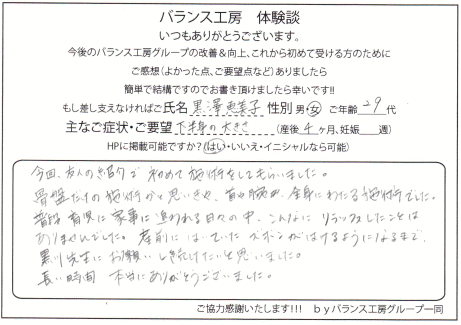 バランス工房 体験談
いつもありがとうございます。
今後のバランス工房グループの改善＆向上、これから初めて受ける方のために
ご感想（よかった点、ご要望点など）ありましたら
簡単で結構ですのでお書き頂けましたら幸いです!!
もし差し支えなければご氏名 黒澤恵美子 性別 男・女 ご年齢 29 代
主なご症状・ご要望 下半身の大きさ （産後 4 ヶ月、妊娠 週）
HPに掲載可能ですか？（はい・いいえ・イニシャルなら可能）
今回、友人の紹介で初めて施術をしてもらいました。
骨盤だけの施術かと思いきや、首や腕や、全身にわたる施術でした。
普段育児に家事に追われる日々の中、こんなにリラックスしたことは
ありませんでした。産前にはいていたズボンがはけるようになるまで、
黒川先生にお願いし続けたいと思いました。
長い時間 本当にありがとうございました。
ご協力感謝いたします!!! byバランス工房グループ一同